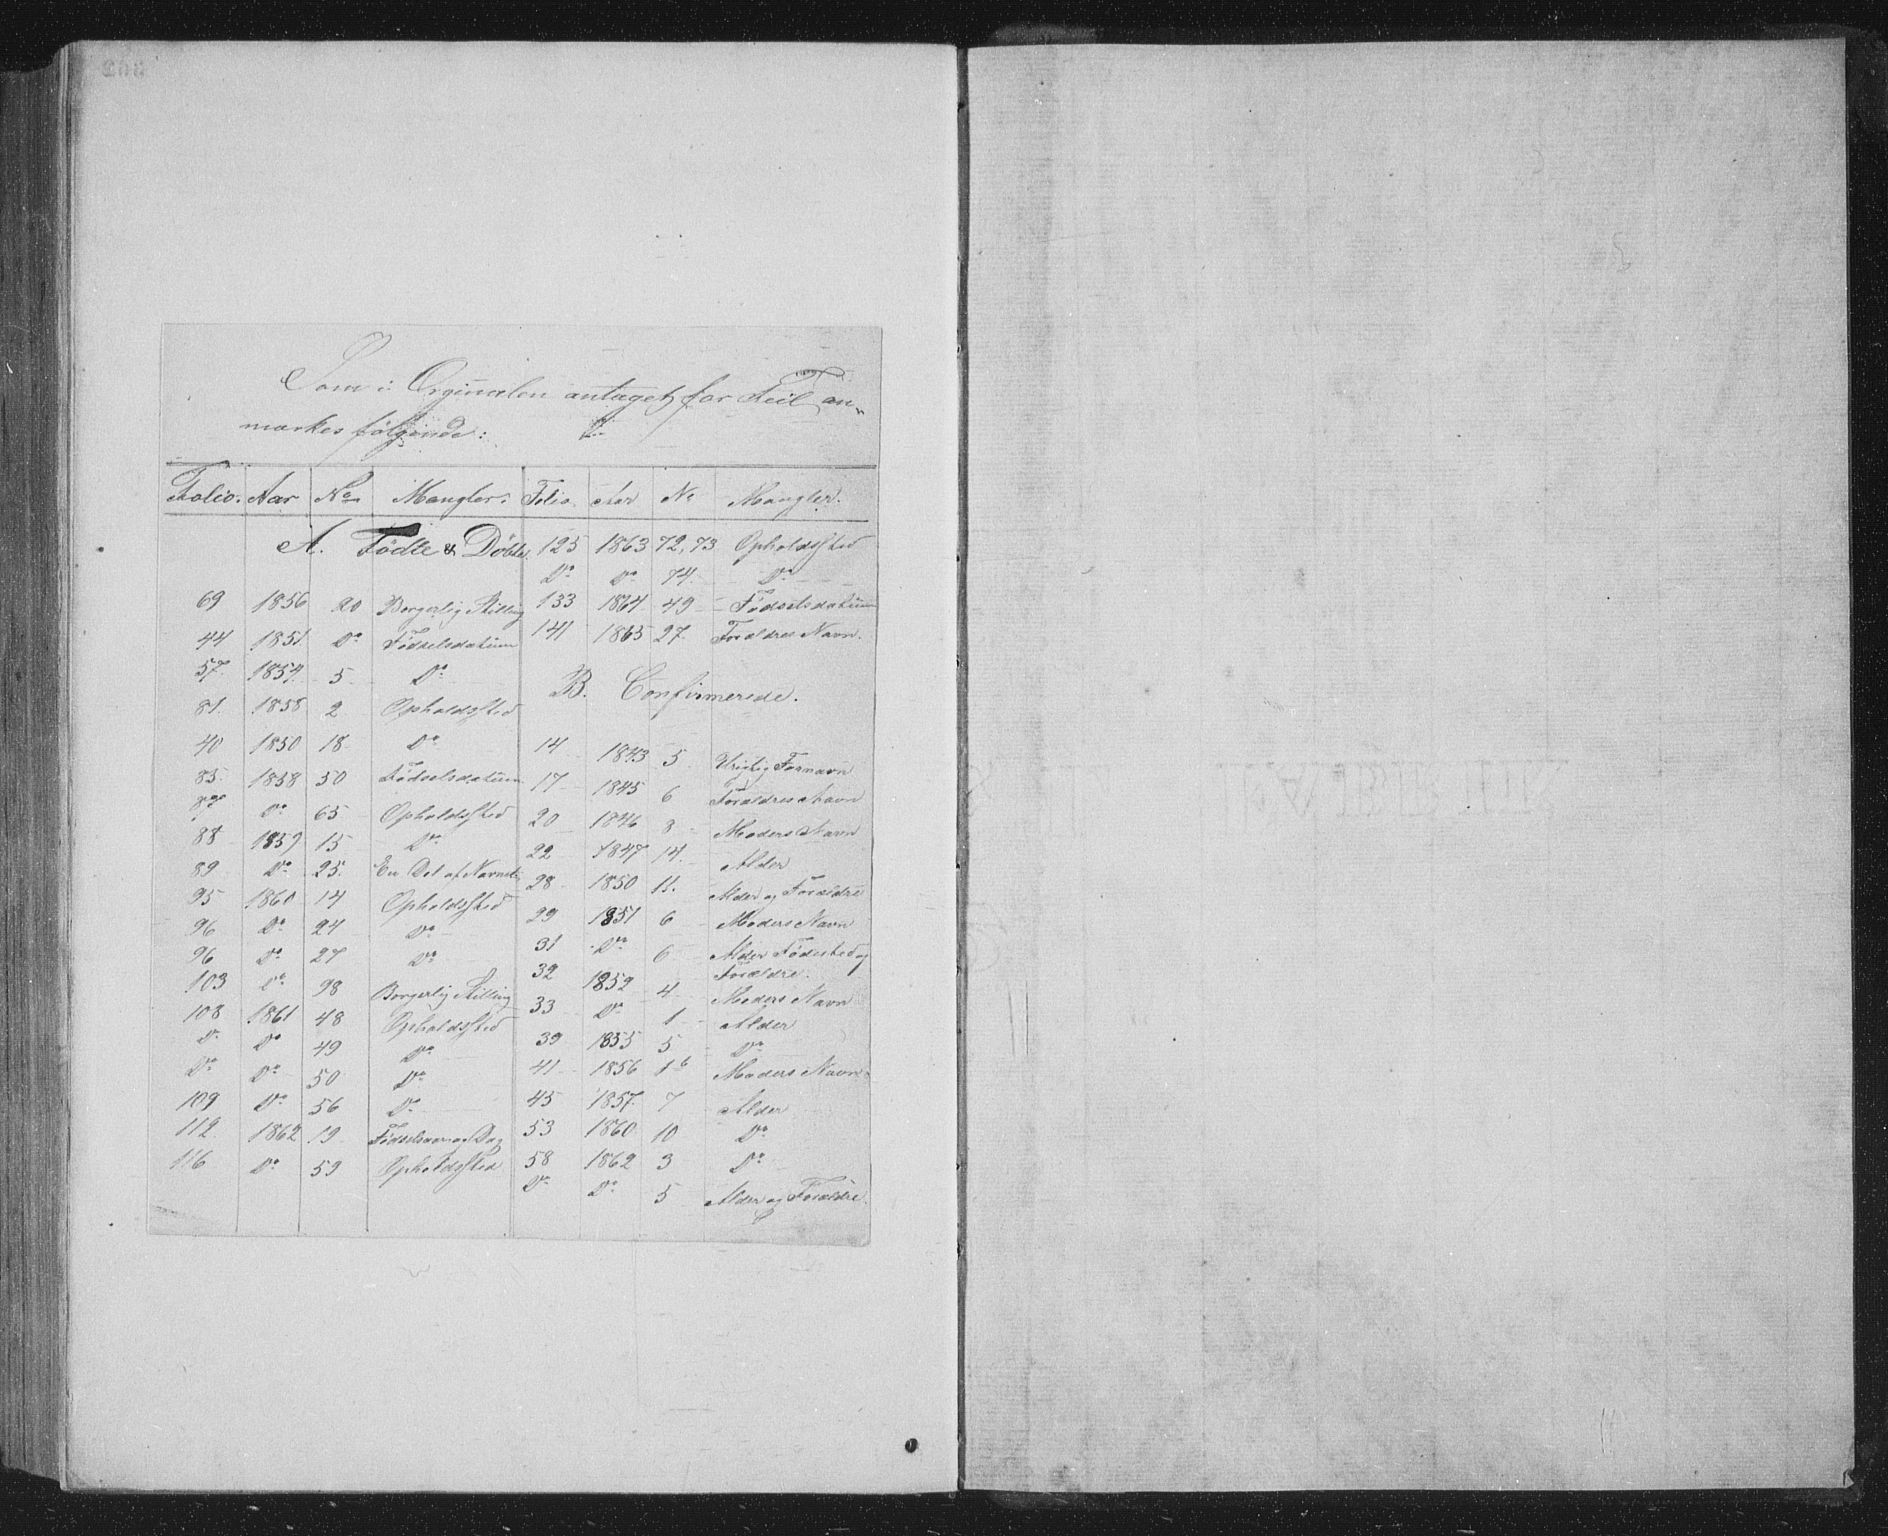 Som i Orginalen antaget for Feil an-
mærkes følgende:
Folio. Aar No Mangler.
A. Fødte & Døbte.
69 1856 20 Borgerlig Stilling
44 1851 Do Fødselsdatum
57 1854 5 Do
81. 1858 2 Opholdssted
40 1850 18 Do
85 1858 50 Fødselsdatum
87 Do 65 Opholdssted
88 1859 15 Do
89 Do 25. En Del af Navnet
95 1860 14 Opholdssted
96 Do 24 Do
96 Do 27 Do
103 Do 98 Borgerlig Stilling
108 1861 48 Opholdssted
Do Do 49 Do
Do Do 50 Do
109 Do 56 Do
112 1862 19 Fødselsaar og Dag
116 Do 59 Opholdssted
Folio. Aar No Mangler.
125 1863 72, 73 Opholdssted
Do Do 74. Do
133 1864 49 Fødselsdatum
141 1865 27. Forældres Navn.
B. Confirmerede.
14 1843 5 Urigtig Fornavn
17 1845 6 Forældres Navn
20 1846 8 Moders Navn
22 1847 14. Alder
28 1850 11. Alder og Forældre
29 1851 6 Moders Navn
31 Do 6 Alder Fødested og
Forældre.
32 1852 4 Moders Navn
33 Do 1 Alder
39 1855 5 Do
41 1856 16 Moders Navn
45 1857. 7 Alder
53 1860 10 Do
58 1862 3 Do
Do Do 5 Alder og Forældre.